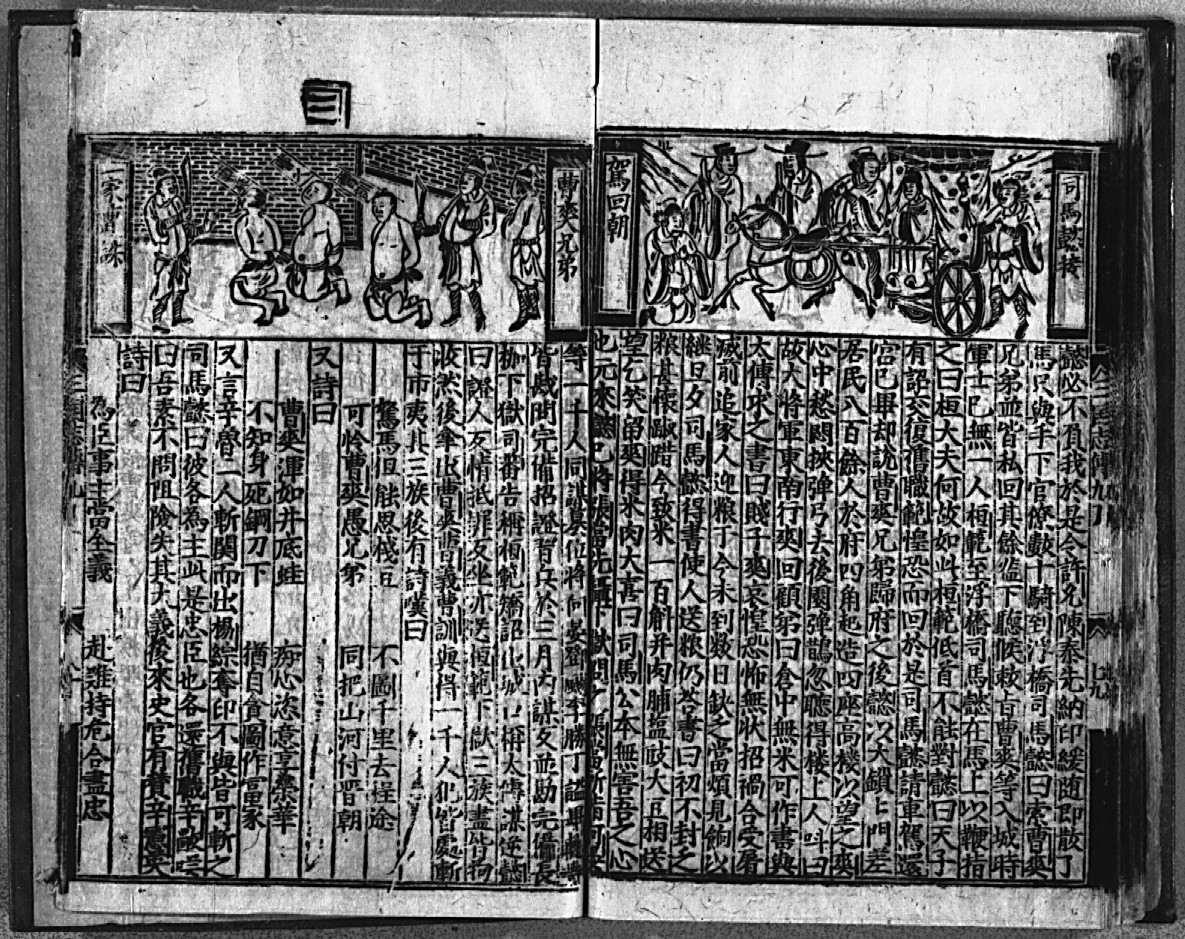 司馬懿接
駕回朝
懿必不負我於是令許允陳泰先納印綬隨即散了
馬只與手下官僚數十騎到浮橋司馬懿曰索曹爽
兄弟並皆私回其餘監下聽候敕旨曹爽等入城時
軍士已無一人桓範至浮橋司馬懿在馬上以鞭指
之曰桓大夫何故如此桓範低首不能對懿曰天子
有詔交復舊職範惶恐而回於是司馬懿請車駕還
宮已畢却說曹爽兄弟歸府之後懿以大鎖上門差
居民八百餘人於府四角起造四座高樓以望之爽
心中愁悶挾彈弓去後園彈鵲忽聽得樓上人叫曰
故大將軍東南行爽回顧弟曰倉中無米可作書與
太傅求之書曰賤子爽哀惶恐怖無狀招禍合受屠
滅前追家人迎粮于今未到数日缺乏當煩見餉以
繼旦夕司馬懿得書使人送粮仍荅書曰初不封之
粮甚懷踧踖今致米一百斛并肉脯塩豉大豆相送
望乞笑留爽得米肉大喜曰司馬公本無害吾之心
也元來懿已將張當先
曹爽兄弟
一家曹誅
等一千人同謀
皆
枷下獄司番告稱桓範矯詔出城口稱太傅謀逆懿
曰證人反情抵罪反坐亦送桓範下獄三族盡皆拘
收然後牵出曹爽曹羲曹訓與得一千人犯皆處斬
于市夷其三族後有詩嘆曰
駑馬但能思棧豆 不圖千里去程途
可怜曹爽愚兄弟 同把山河付晋朝
又詩曰
曹爽渾如井底蛙 痴心恣意享榮華
不知身死鋼刀下 猶自貪圖作富家
又言辛魯一人斬関而出楊綜奪印不與皆可斬之
司馬懿曰彼各為主此是忠臣也各還舊職辛敞嘆
曰吾素不問阻險失其大義後來史官有賛辛憲英
詩曰
為臣事主當全義 赴難持危合盡忠